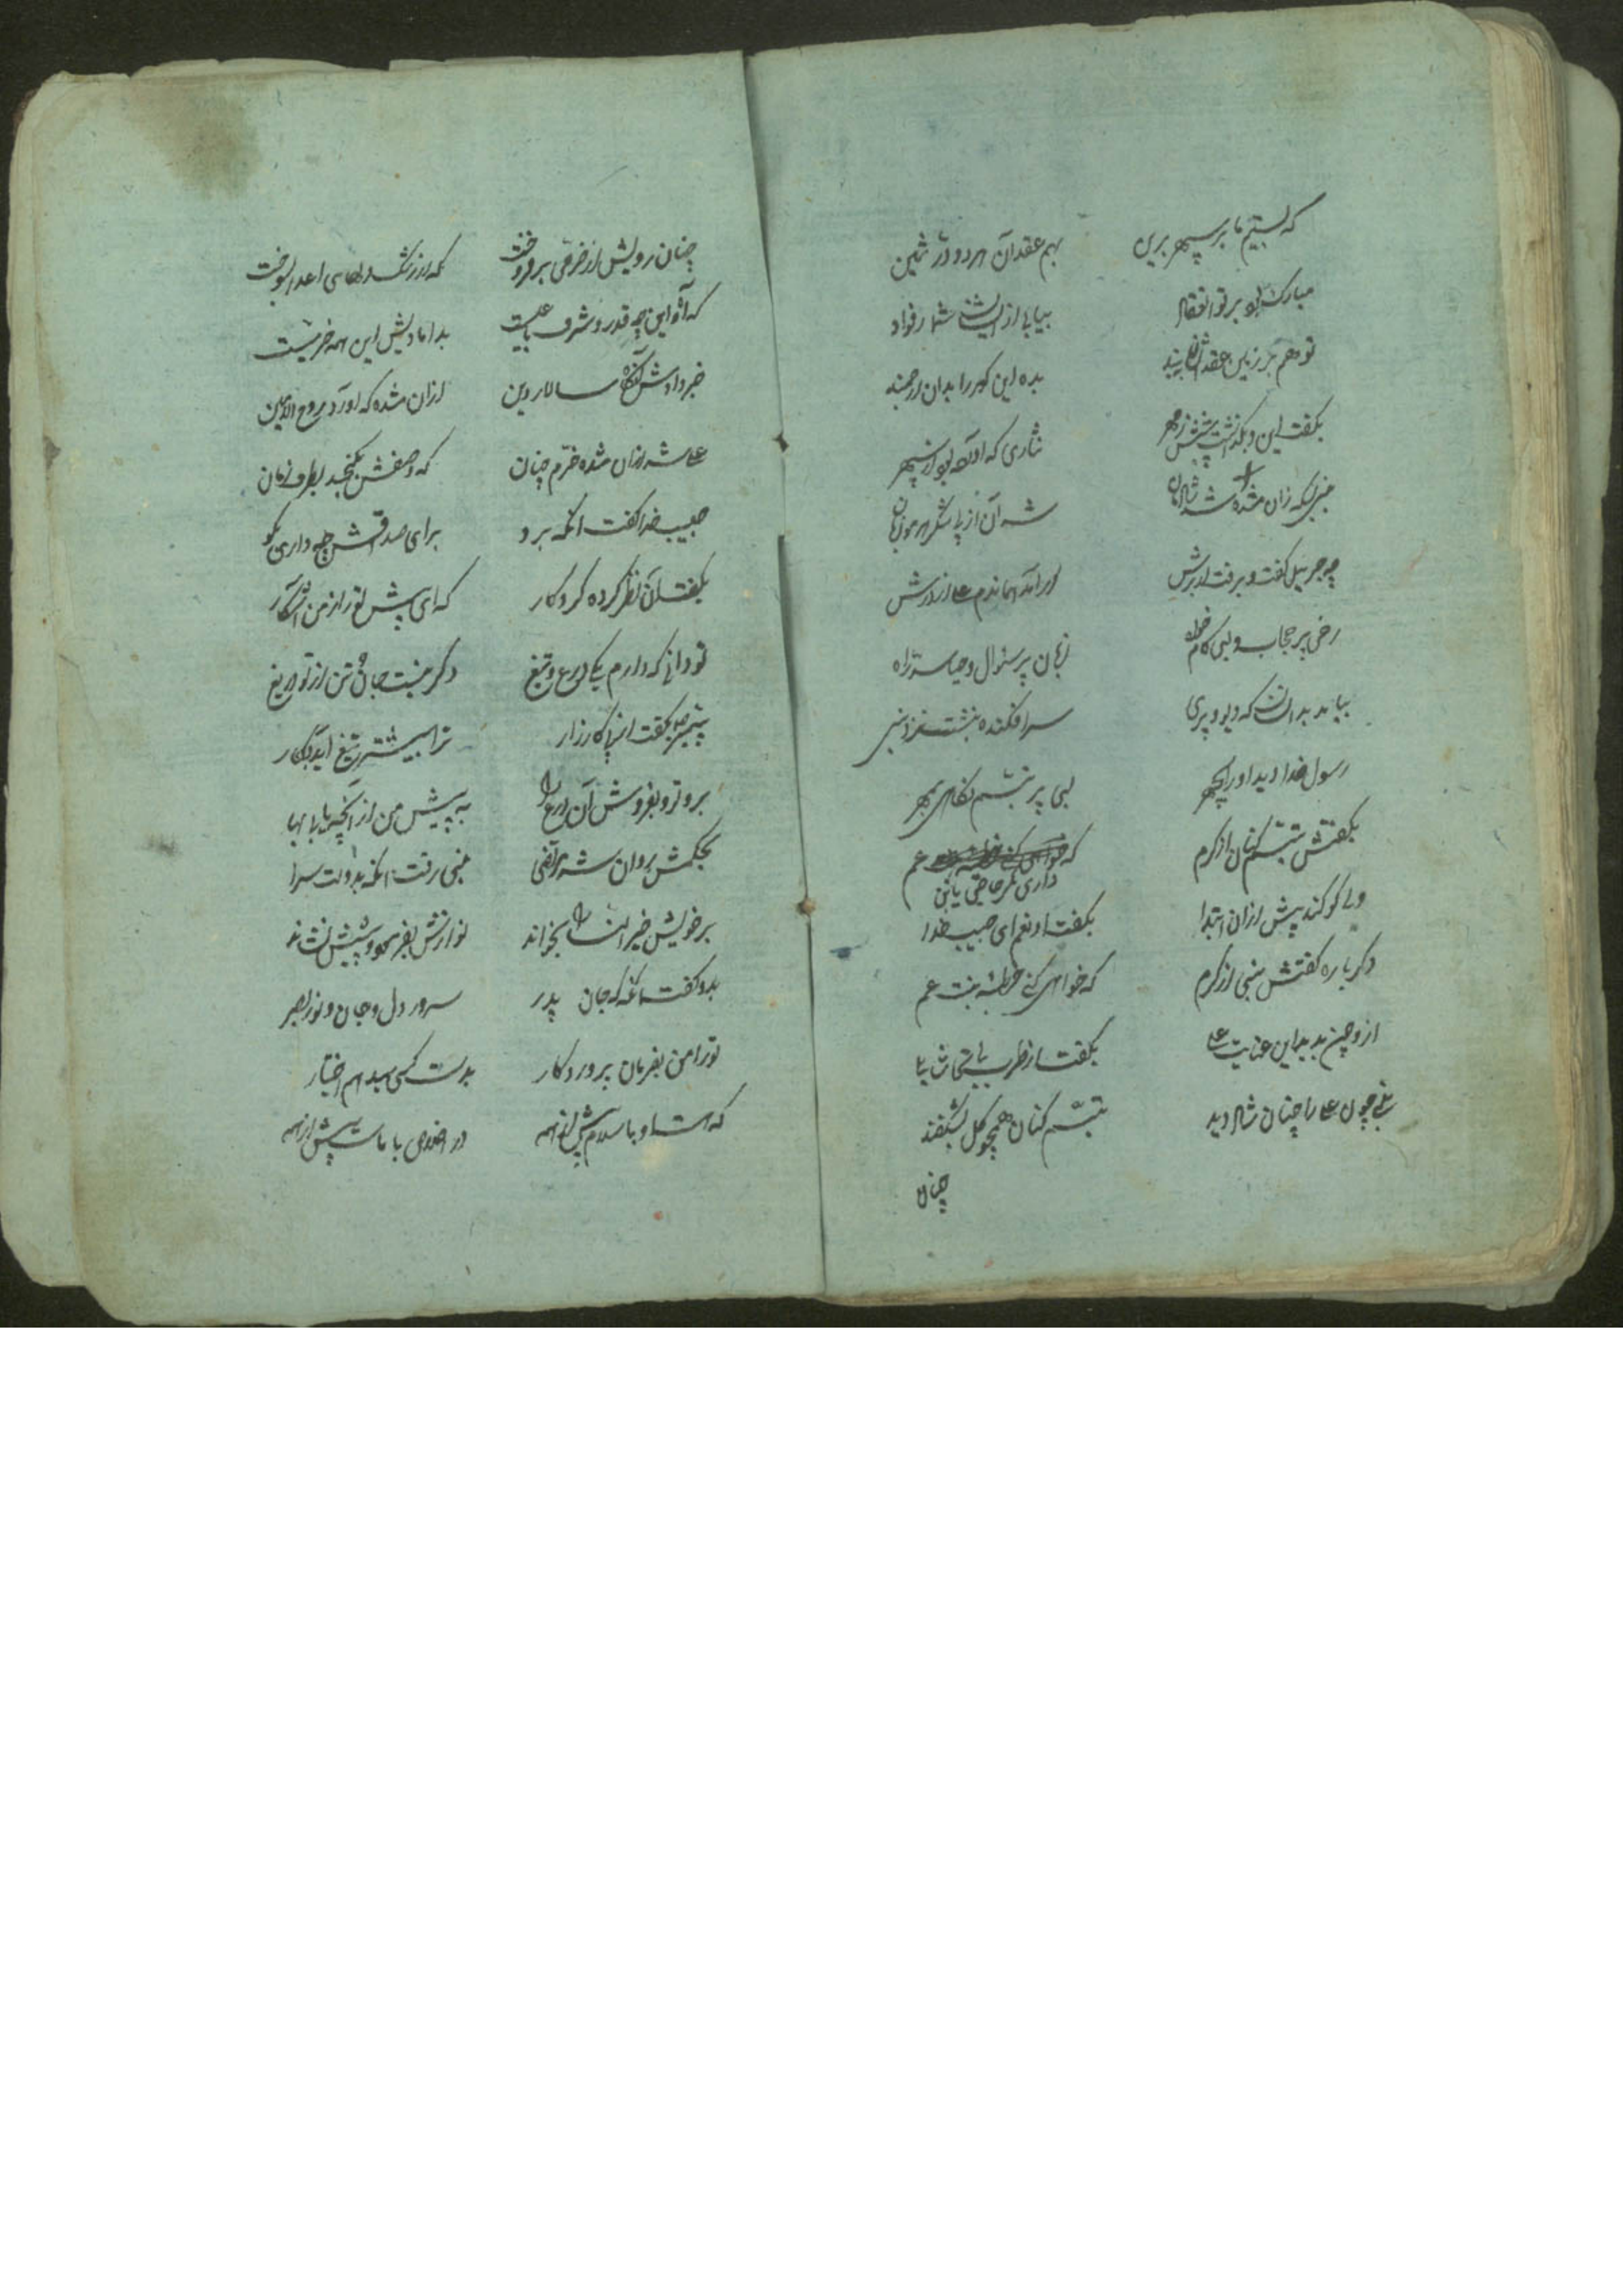 که بستیم ما بر سپهر برین بهم عقد آن هر دو در ثمین
مبارک بود بر تو
تو هم بر زمین عقد بده این گوهر را بدان ارجمند
بگفت این و بگذاشت پیشش ز مهر نثاری که آورده بود از سپهر
نبی بسکه زان مژده شد شادمان شد آن از پا شکر
چه جبریل گفت و برفت از برش در آمد هماندم علی از درش
رخی پر حجاب و لبی زبان پر سئوال و حیا
بیامد بدانسان که دیو و پری سرافکنده بنشست نزد نبی
رسول خدا دید او را بچهر لبی پر تبسم نگاهی بمهر
بگفتش تبسم کنان از کرم که داری مگر حاجتی یابن عم
ولی کو کند پیش ازان ابتدا بگفتا نعم ای حبیب خدا
دگر باره گفتش نبی از کرم که خواهی کنی خطبه بنت عم
ازو چون بدید این عنایت علی بگفت از طرب
نبی چون علی را چنان شاد دید تبسم کنان همچو گل بشکفید
چنان
چنان رویش از خرمی برفروخت که از رشک دلهای اعدا بسوخت
که آه این چه قدر و شرف بدامادیش این همه خرمیست
خبر دادش آنگاه سالار دین ازان مژده که آورد روح الامین
علی شد ازان مژده خرم چنان که وصفش نگنجد بظرف زمان
حبیب خدا گفت آنگه برو برای صداقش چه داری بگو
بگفت آن نظر کرده کردگار که ای پیش تو راز من آشکار
تو دانی که دارم یکی درع و تیغ دگر نیست جان و تن از تو دریغ
پیمبر بگفت از پی کارزار ترا بیشتر تیغ آید بکار
برو تو بفروش آن درع را به پیش من آر آنچه یابی بها
بحکمش روان شد نبی رفت آنگه بدولت سرا
بر خویش خیر النسا را بخواند نوازش بفرمود و پیشش نشاند
بدو گفت آنگه که جان پدر سرور دل و جان و نور بصر
تو را من بفرمان پروردگار بدست کسی میدهم اختیار
که هست او باسلام پیش از همه در اخوی با ماست پیش از همه